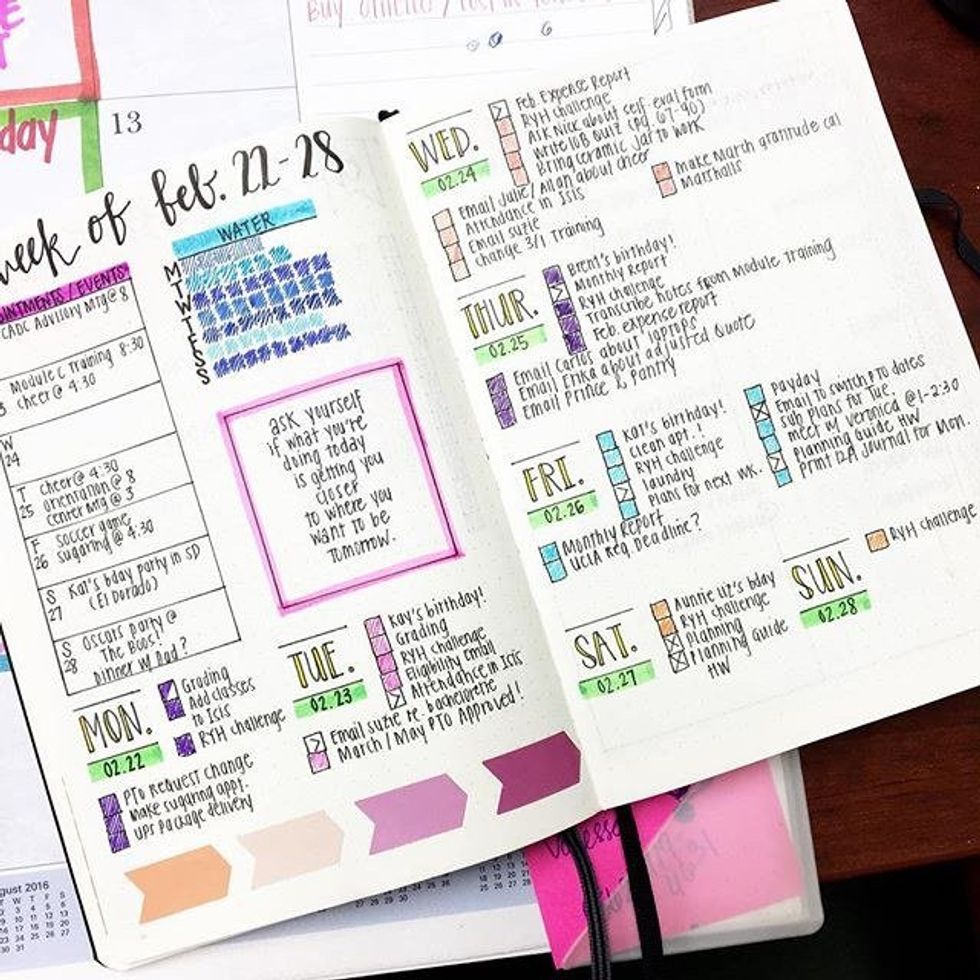 Buy
day
13
week of Feb. 22-28
WATER
M
T
W
T
F
S
S
OINTMENTS / EVENTS
CADC Advisory Mtg @ 8
Module C Training 8:30
cheer @ 4:30
W
24
T cheer @ 4:30
25 orientation @ 8
center mtg @ 3
F soccer game
26 sugaring @ 4:30
S Kat's bday party in SD
27 (El Dorado)
S Oscars party @
28 The Boos!
Dinner w/ Dad?
ask yourself
if what you're
doing today
is getting you
closer
to where you
want to be
tomorrow.
MON.
02.22
Grading
Add classes
to Isis
RYH challenge
PTO request change
make sugaring appt.
UPS package delivery
TUE.
02.23
Kay's birthday!
Grading
RYH challenge
Eligibility email
Attendance in Isis
Email Suzie re. bachelorette
March / May PTO Approved!
WED.
02.24
Feb Expense Report
RYH challenge
Ask Nice about self-eval form
Write 10B Quiz (pg. 67-90)
Bring ceramic jar to work
Email Julie / Allan about cheer
Attendance in Isis
Email Suzie
change 3/1 Training
make March gratitude cal
Marshalls
THUR.
02.25
Brent's birthday!
Monthly Report
RYH challenge
Transcribe notes from Module Training
Feb. expense report
Email Carlos about laptops
Email Erika about adjusted Quote
Email Prince & Pantry
FRI.
02.26
Kat's birthday!
Clean apt.!
RYH challenge
laundry
Plans for next wk.
Payday
Email to switch PTO dates
Sub plans for Tue
meet w/ Veronica @ 1-2:30
Planning Guide HW
Print D/A Journal for Mon.
Monthly Report
UCLA Reg. Deadline?
SAT.
02.27
Auntie Liz's bday
RYH challenge
Planning
Planning Guide
HW
SUN.
02.28
RYH challenge
gust 2016